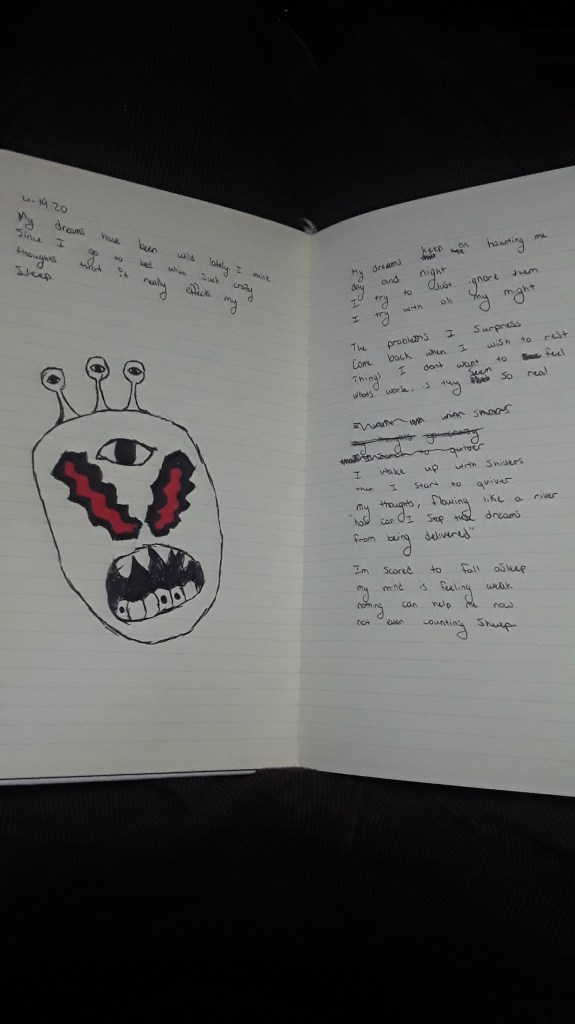 4-19-20
My dreams have been wild lately I think
Since I go to bed with such crazy
thoughts that it really effects my
Sleep
My dreams keep on haunting me
day and night
I try to just ignore them
I try with all my might
The problems I surpress
Come back when I wish to rest
Things I dont want to feel
whats worse, is they seem so real
I wake up with shiders
then I start to quiver
my thoughts, flowing like a river
"how can I stop these dreams
from being delivered"
Im scared to fall asleep
my mind is feeling weak
nothing can help me now
not even counting Sheep